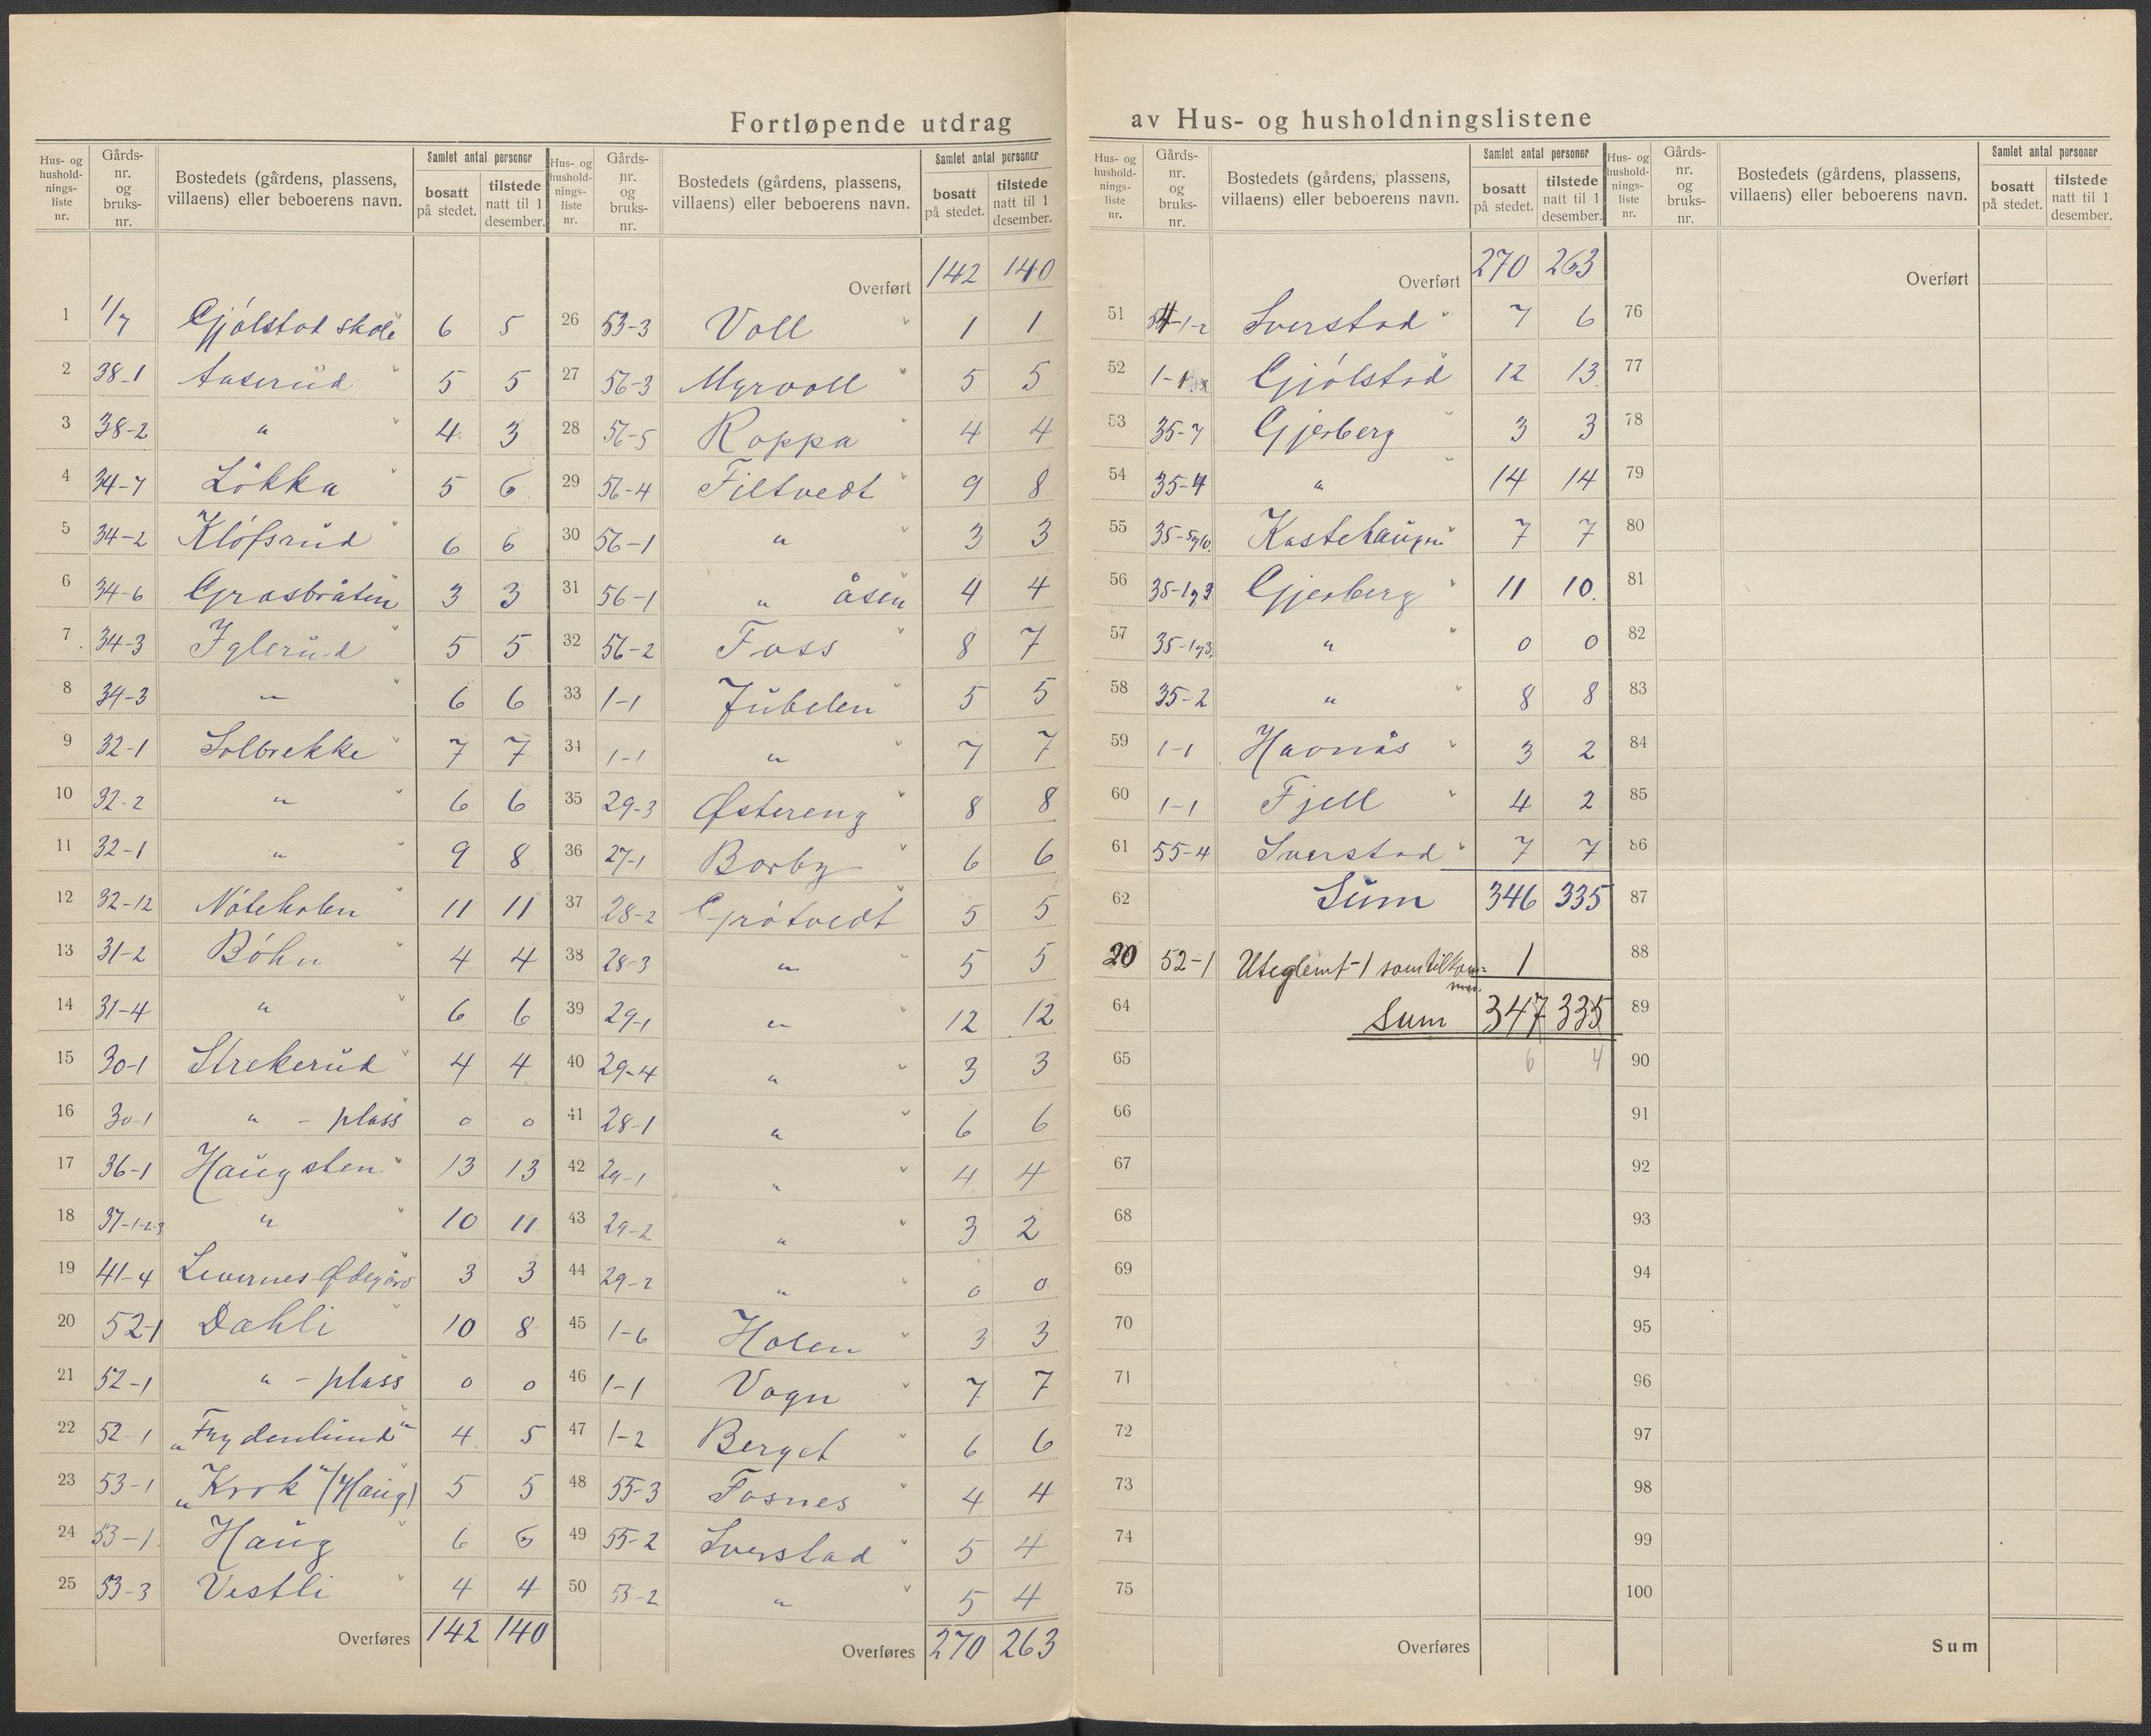 Fortløpende utdrag av Hus- og husholdningslistene
Hus- og hushold-nings-liste nr. Gårds-nr. og bruks-nr. Bostedets (gårdens, plassens, villaens) eller beboerens navn. Samlet antal personer bosatt på stedet. tilstede natt til 1 desember.
1 1/7 Gjølstad skole 6 5
2 38-1 Aaserud 5 5
3 38-2 " 4 3
4 34-7 Løkka 5 6
5 34-2 Kløfsrud 6 6
6 34-6 Grasbråten 3 3
7 34-3 Iglerud 5 5
8 34-3 " 6 6
9 32-1 Solbrekke 7 7
10 32-2 " 6 6
11 32-1 " 9 8
12 32-12 Nøteholen 11 11
13 31-2 Bøhn 4 4
14 31-4 " 6 6
15 30-1 Strekerud 4 4
16 30-1 " - plass 0 0
17 36-1 Haugsten 13 13
18 37-1-2-3 " 10 11
19 41-4 Levernes Ødegård 3 3
20 52-1 Dahli 10 8
21 52-1 " - plass 0 0
22 52-1 "Frydenlund" 4 5
23 53-1 "Krok" (Haug) 5 5
24 53-1 Haug 6 6
25 53-3 Vestli 4 4
Overføres 142 140
Hus- og hushold-nings-liste nr. Gårds-nr. og bruks-nr. Bostedets (gårdens, plassens, villaens) eller beboerens navn. Samlet antal personer bosatt på stedet. tilstede natt til 1 desember.
Overført 142 140
26 53-3 Voll 1 1
27 56-3 Myrvoll 5 5
28 56-5 Roppa 4 4
29 56-4 Filtvedt 9 8
30 56-1 " 3 3
31 56-1 " åsen 4 4
32 56-2 Foss 8 7
33 1-1 Jubelen 5 5
34 1-1 " 7 7
35 29-3 Østereng 8 8
36 27-1 Borby 6 6
37 28-2 Grøtvedt 5 5
38 28-3 " 5 5
39 29-1 " 12 12
40 29-4 " 3 3
41 28-1 " 6 6
42 29-1 " 4 4
43 29-2 " 3 2
44 29-2 " 0 0
45 1-6 Holen 3 3
46 1-1 Vogn 7 7
47 1-2 Berget 6 6
48 55-3 Fosnes 4 4
49 55-2 Sverstad 5 4
50 53-2 " 5 4
Overføres 270 263
Hus- og hushold-nings-liste nr. Gårds-nr. og bruks-nr. Bostedets (gårdens, plassens, villaens) eller beboerens navn. Samlet antal personer bosatt på stedet. tilstede natt til 1 desember.
Overført 270 263
51 54-1-2 Sverstad 7 6
52 1-1 Gjølstad 12 13
53 35-7 Gjerberg 3 3
54 35-4 " 14 14
55 35-5 Kastehaugen 7 7
56 35-1 3 Gjerberg 11 10
57 35-1 3 " 0 0
58 35-2 " 8 8
59 1-1 Havnås 3 2
60 1-1 Fjell 4 2
61 55-4 Sverstad 7 7
62 Sum 346 335
20 52-1 Uteglemt - 1 som tilkommer 1
64 Sum 347 335
65 6 4
66
67
68
69
70
71
72
73
74
75
Overføres
Hus- og hushold-nings-liste nr. Gårds-nr. og bruks-nr. Bostedets (gårdens, plassens, villaens) eller beboerens navn. Samlet antal personer bosatt på stedet. tilstede natt til 1 desember.
Overført
76
77
78
79
80
81
82
83
84
85
86
87
88
89
90
91
92
93
94
95
96
97
98
99
100
Sum